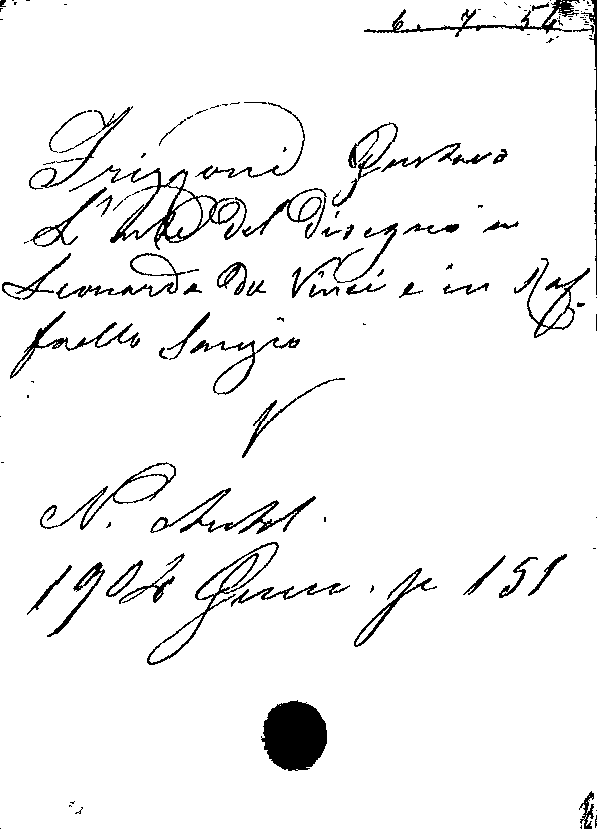 6. 7. 54
Frizzoni Gustavo
L'Arte del disegno in
Leonardo da Vinci e in Raf-
faello Sanzio
V
N. Antol.
1904 Genn. p 151